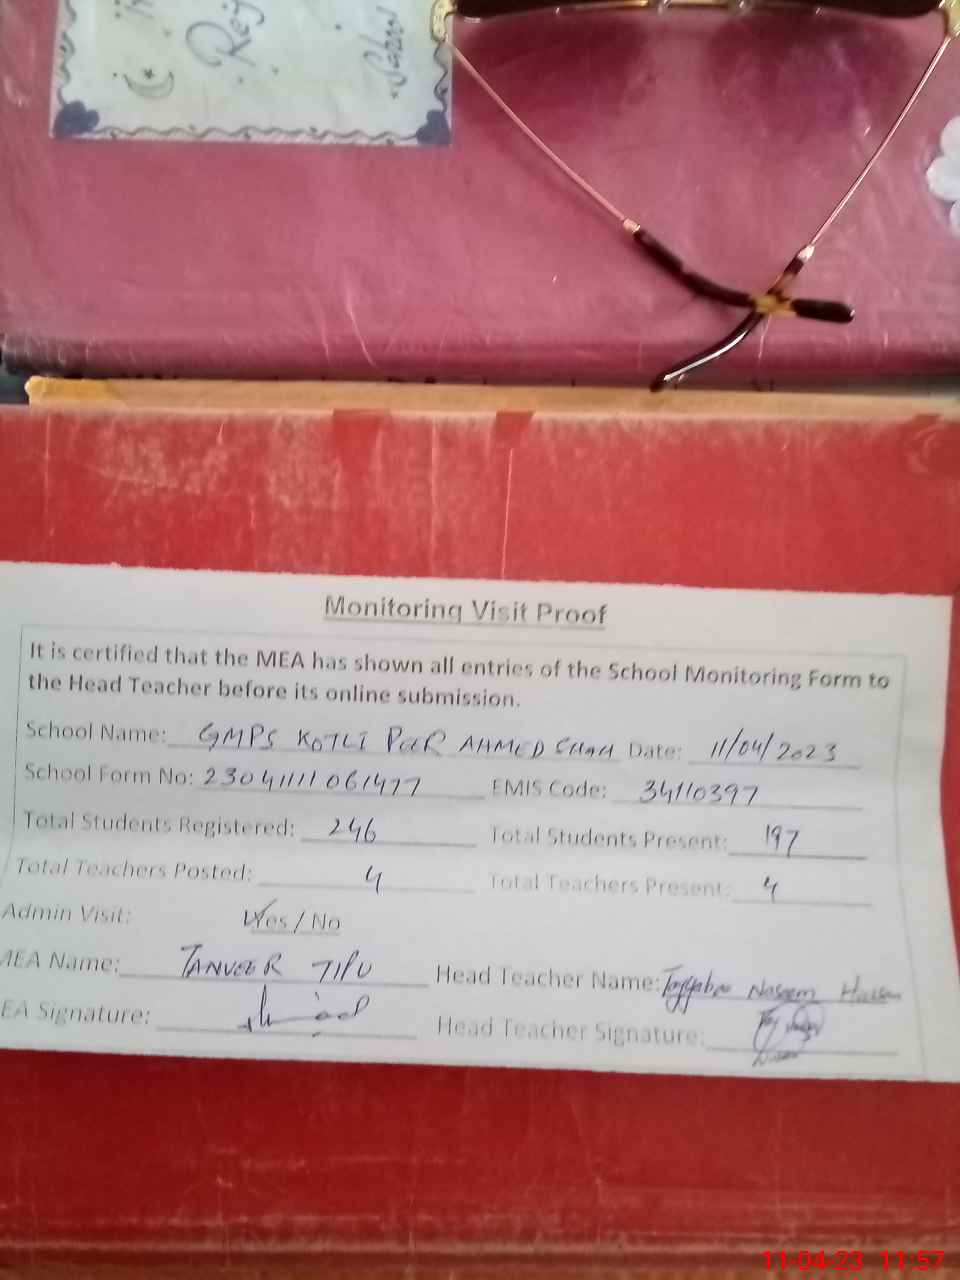 Monitoring Visit Proof
It is certified that the MEA has shown all entries of the School Monitoring Form to
the Head Teacher before its online submission.
School Name: GMPS KOTLI PEER AHMED SHAH Date: 11/04/2023
School Form No: 23041111061477 EMIS Code: 34110397
Total Students Registered: 246 Total Students Present: 197
Total Teachers Posted: 4 Total Teachers Present: 4
Admin Visit: Yes / No
MEA Name: TANVEER TIPU Head Teacher Name: Tayyaba Naseem Hassan
EA Signature: Head Teacher Signature:
11-04-23 11:57